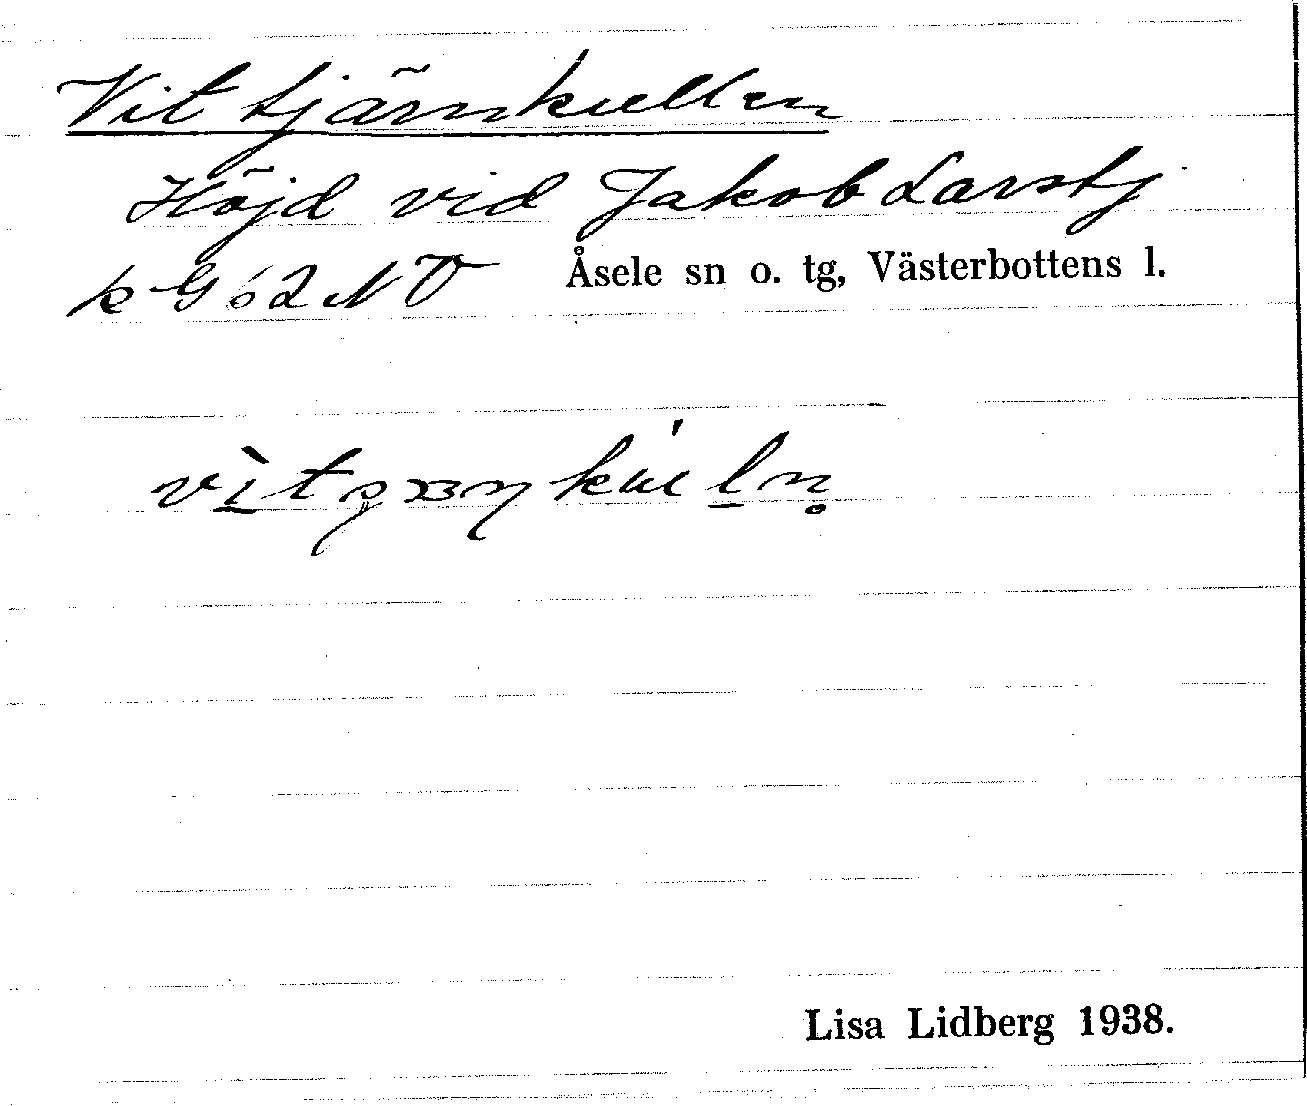 Vittjärnkullen
Höjd vid Jakob Larstj
k G 62 NV Åsele sn o. tg, Västerbottens l.
Lisa Lidberg 1938.